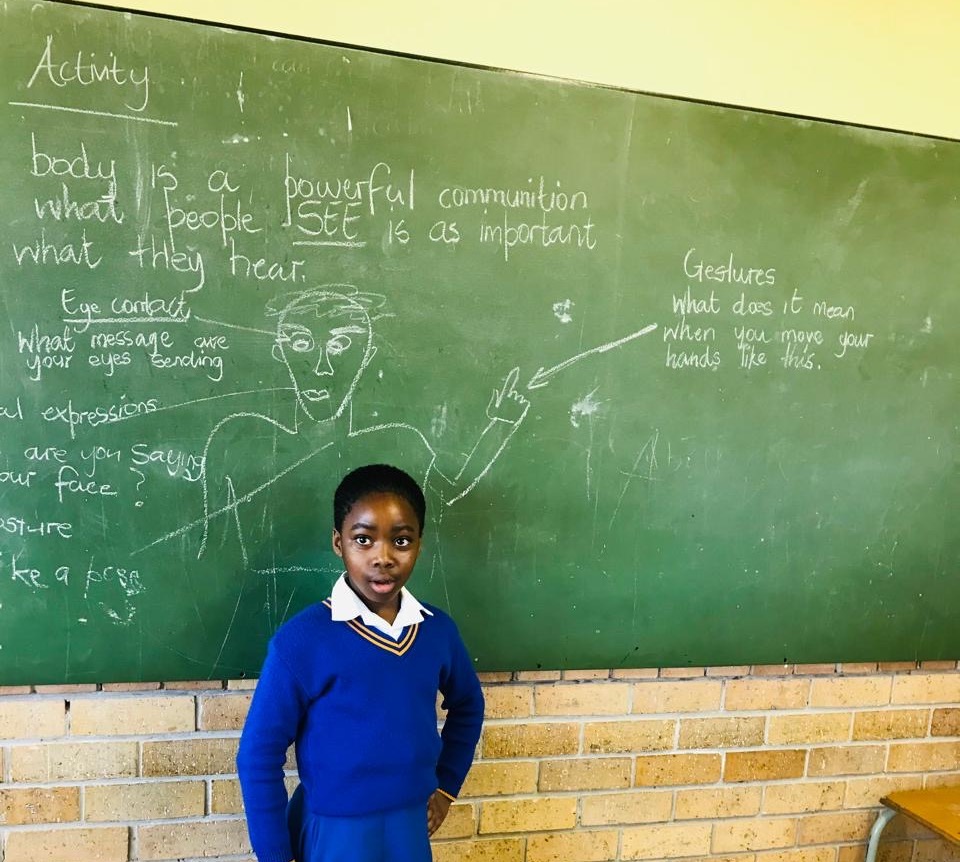 Activity
body is a powerful communition
what people SEE is as important
what they hear.
Eye contact
What message are
your eyes sending
al expressions
are you saying
our face ?
sture
ke a pose
Gestures
What does it mean
when you move your
hands like this.